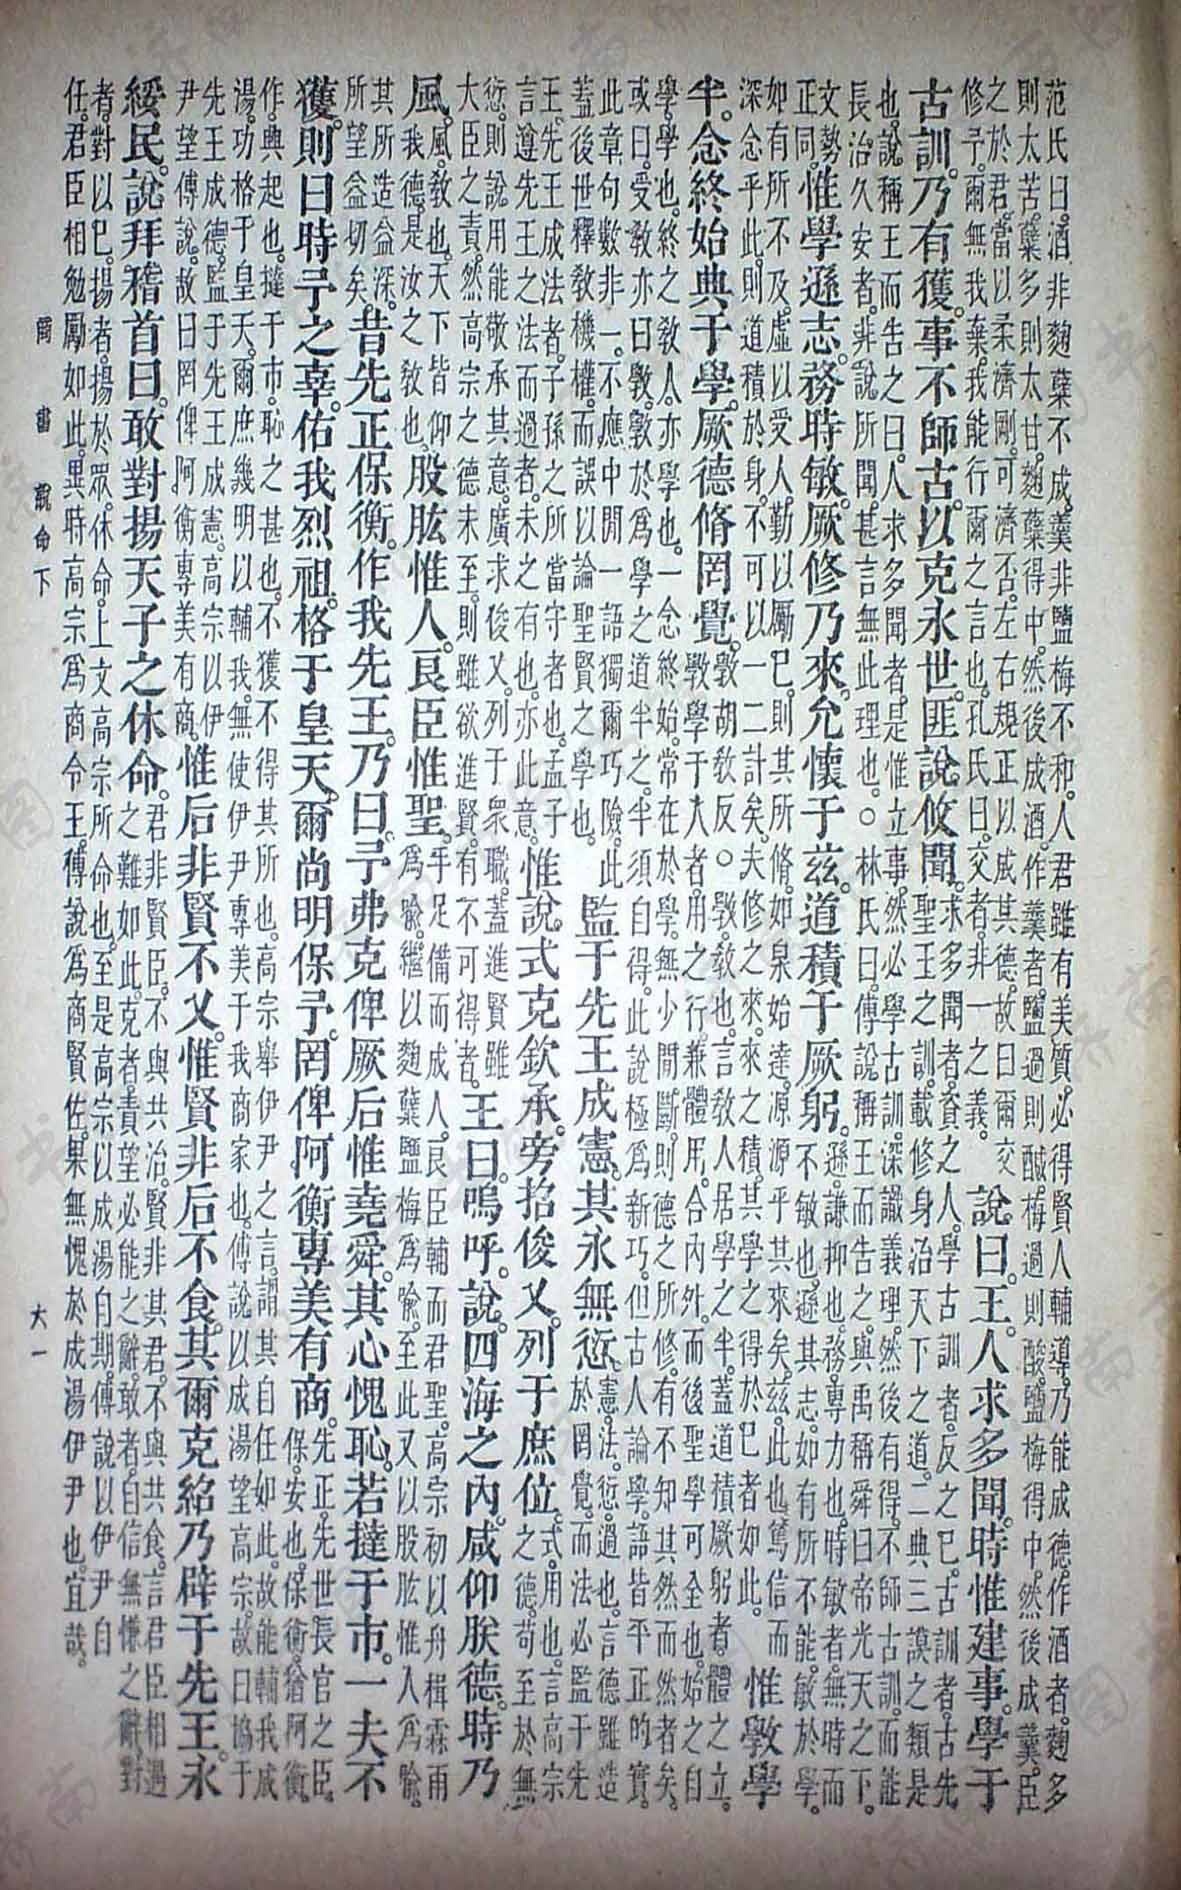 范氏曰。酒非麴糵不成。羹非鹽梅不和。人君雖有美質。必得賢人輔導。乃能成德。作酒者。麴多
則太苦。糵多則太甘。麴糵得中。然後成酒。作羹者。鹽過則鹹。梅過則酸。鹽梅得中。然後成羹。臣
之於君。當以柔濟剛。可濟否。左右規正以成其德。故曰爾交
修予。爾無我棄。我能行爾之言也。孔氏曰。交者。非一之義。
說曰。王。人求多聞。時惟建事。學于
古訓。乃有獲。事不師古。以克永世。匪說攸聞。
求多聞者。資之人。學古訓者。反之己。古訓者。古先
聖王之訓。載修身治天下之道。二典三謨之類是
也。說稱王而告之曰。人求多聞者。是惟立事。然必學古訓。深識義理。然後有得。不師古訓。而能
長治久安者。非說所聞。甚言無此理也。○林氏曰。傅說稱王而告之。與禹稱舜曰帝光天之下。
文勢
正同。
惟學遜志。務時敏。厥修乃來。允懷于茲。道積于厥躬。
遜。謙抑也。務。專力也。時敏者。無時而
不敏也。遜其志。如有所不能。敏於學。
如有所不及。虛以受人。勤以勵己。則其所脩。如泉始達。源源乎其來矣。茲。此也。篤信而
深念乎此。則道積於身。不可以一二計矣。夫修之來。來之積。其學之得於己者如此。
惟斆學
半。念終始典于學。厥德脩罔覺。
斆。胡敎反。○斆。敎也。言敎人居學之半。蓋道積厥躬者。體之立。
斆學于人者。用之行。兼體用。合內外。而後聖學可全也。始之自
學。學也。終之敎人。亦學也。一念終始。常在於學。無少間斷。則德之所修。有不知其然而然者矣。
或曰。受敎亦曰斆。斆於爲學之道半之。半須自得。此說極爲新巧。但古人論學。語皆平正的實。
此章句數非一。不應中間一語獨爾巧險。此
蓋後世釋敎機權。而誤以論聖賢之學也。
監于先王成憲。其永無愆。
憲。法。愆。過也。言德雖造
於罔覺。而法必監于先
王。先王成法者。子孫之所當守者也。孟子
言遵先王之法而過者。未之有也。亦此意。
惟說式克欽承。旁招俊乂。列于庶位。
式。用也。言高宗
之德。苟至於無
愆。則說用能敬承其意。廣求俊乂。列于衆職。蓋進賢雖
大臣之責。然高宗之德未至。則雖欲進賢。有不可得者。
王曰。嗚呼。說。四海之內。咸仰朕德。時乃
風。
風。敎也。天下皆仰
我德。是汝之敎也。
股肱惟人。良臣惟聖。
手足備而成人。良臣輔而君聖。高宗初以舟楫霖雨
爲喩。繼以麴糵鹽梅爲喩。至此又以股肱惟人爲喩。
其所造益深。
所望益切矣。
昔先正保衡。作我先王。乃曰。予弗克俾厥后惟堯舜。其心愧恥。若撻于市。一夫不
獲。則曰時予之辜。佑我烈祖。格于皇天。爾尚明保予。罔俾阿衡專美有商。
先正。先世長官之臣。
保。安也。保衡。猶阿衡。
作。興起也。撻于市。恥之甚也。不獲。不得其所也。高宗舉伊尹之言。謂其自任如此。故能輔我成
湯。功格于皇天。爾庶幾明以輔我。無使伊尹專美于我商家也。傅說以成湯望高宗。故曰協于
先王成德。監于先王成憲。高宗以伊
尹望傅說。故曰罔俾阿衡專美有商。
惟后非賢不乂。惟賢非后不食。其爾克紹乃辟于先王。永
綏民。說拜稽首曰。敢對揚天子之休命。
君非賢臣。不與共治。賢非其君。不與共食。言君臣相遇
之難如此。克者。責望必能之辭。敢者。自信無慊之辭。對
者。對以己。揚者。揚於衆。休命。上文高宗所命也。至是高宗以成湯自期。傅說以伊尹自
任。君臣相勉勵如此。異時高宗爲商令王。傅說爲商賢佐。果無愧於成湯伊尹也。宜哉。
尚書 說命下 六一